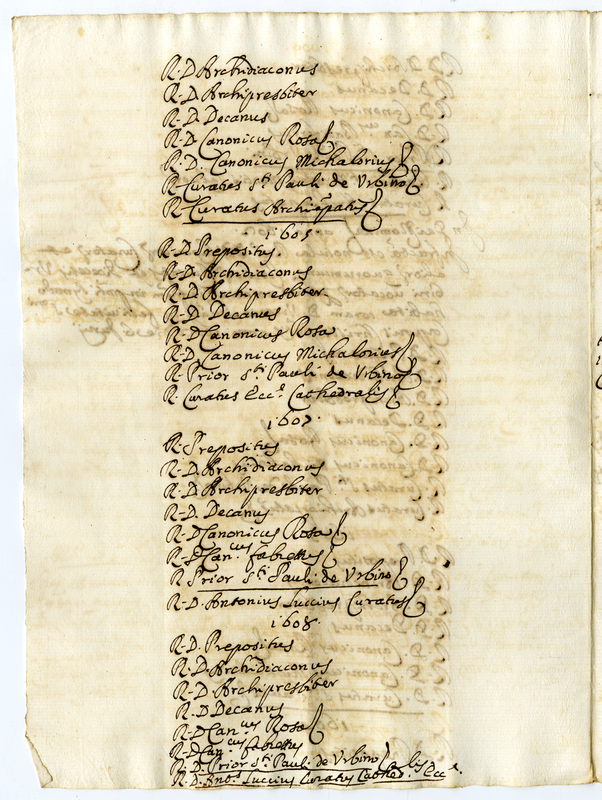 R. D. Archidiaconus
R. D. Archipresbiter
R. D. Decanus
R. D. Canonicus Rosa
R. D. Canonicus Michalorius
R. Curatus sti Pauli de Urbino
R. Curatus Archiepatus
1605.
R. D. Prepositus.
R. D. Archidiaconus
R. D. Archipresbiter.
R. D. Decanus
R. D. Canonicus Rosa
R. D. Canonicus Michalorius
R. Prior sti Pauli de Urbino
R. Curatus Ecce Cathedralis
1607.
R. Prepositus
R. D. Archidiaconus
R. D. Archipresbiter
R. D. Decanus
R. D. Canonicus Rosa
R. D. Canus fabrettus
R. Prior sti Pauli de Urbino
R. D. Antonius Luccius Curatus
1608.
R. D. Prepositus
R. D. Archidiaconus
R. D. Archipresbiter
R. D. Decanus
R. D. Canus Rosa
R. D. Canus fabrettus
R. D. Prior sti Pauli de Urbino
R. D. Anto. Luccius Curatus Cathedralis Ecce.